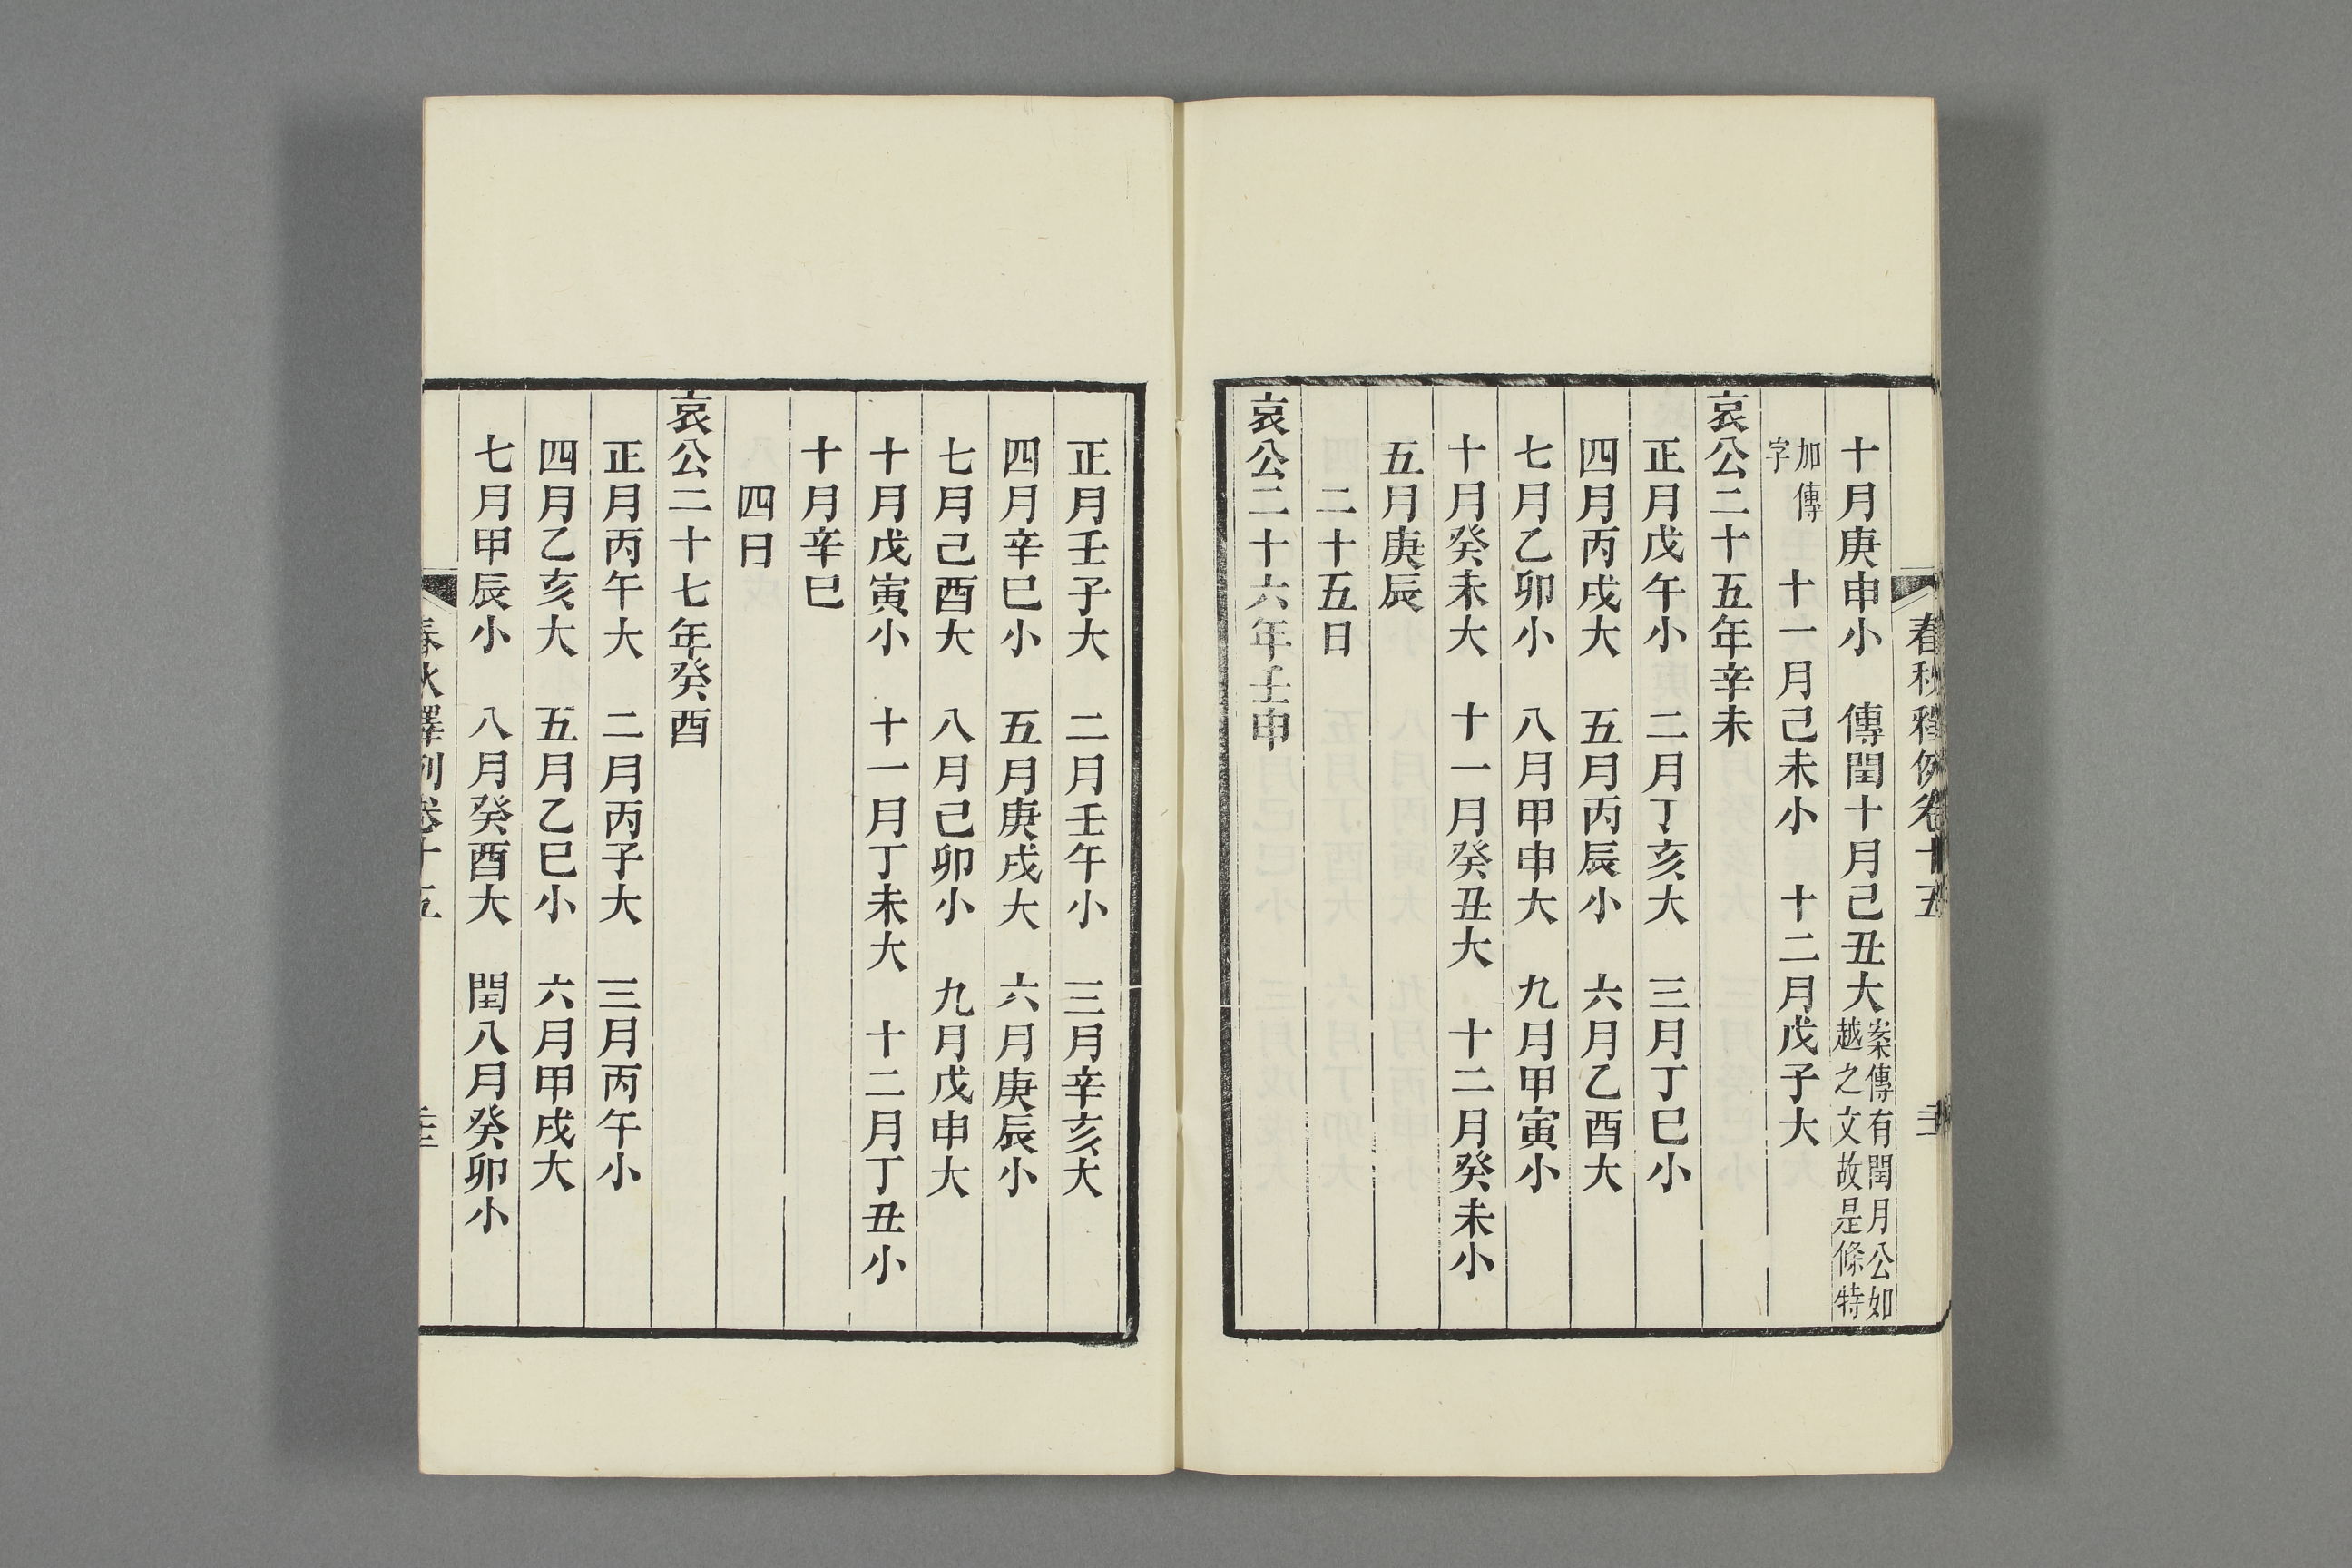 春秋釋例卷十五
十月庚申小　傳閏十月己丑大案傳有閏月公如越之文故是條特
加傳字　十一月己未小　十二月戊子大
哀公二十五年辛未
正月戊午小　二月丁亥大　三月丁巳小
四月丙戌大　五月丙辰小　六月乙酉大
七月乙卯小　八月甲申大　九月甲寅小
十月癸未大　十一月癸丑大　十二月癸未小
五月庚辰
二十五日
哀公二十六年壬申
正月壬子大　二月壬午小　三月辛亥大
四月辛巳小　五月庚戌大　六月庚辰小
七月己酉大　八月己卯小　九月戊申大
十月戊寅小　十一月丁未大　十二月丁丑小
十月辛巳
四日
哀公二十七年癸酉
正月丙午大　二月丙子大　三月丙午小
四月乙亥大　五月乙巳小　六月甲戌大
七月甲辰小　八月癸酉大　閏八月癸卯小
春秋釋例卷十五